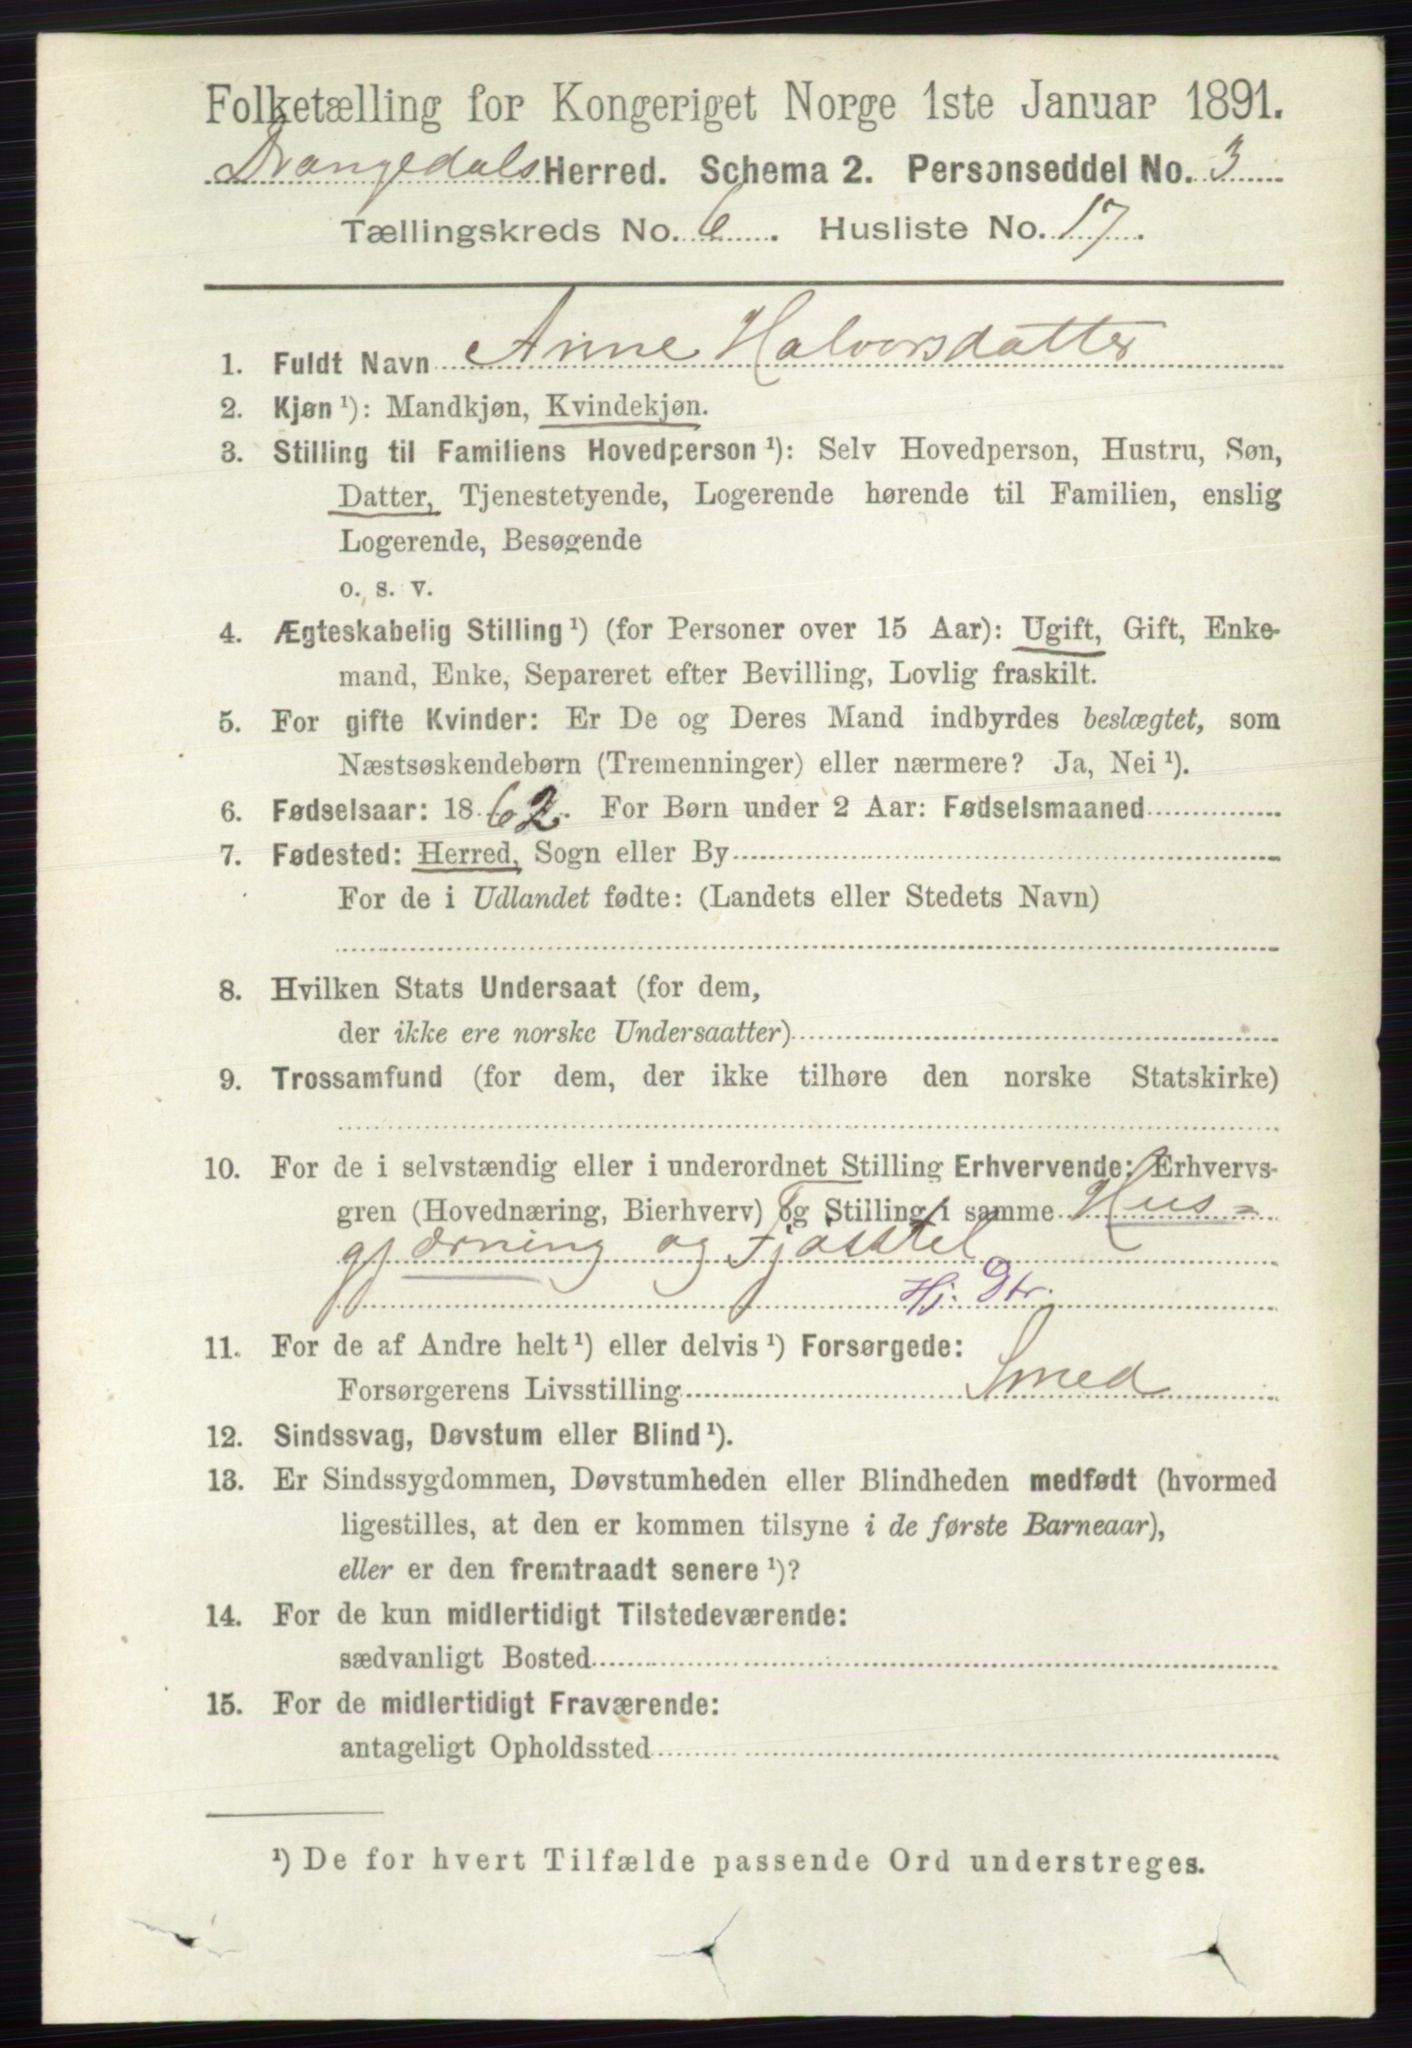 Folketælling for Kongeriget Norge 1ste Januar 1891.
Drangedals Herred. Schema 2. Personseddel No. 3
Tællingskreds No. 6. Husliste No. 17.
1. Fuldt Navn Anne Halvorsdatter
2. Kjøn ¹): Mandkjøn, Kvindekjøn.
3. Stilling til Familiens Hovedperson ¹): Selv Hovedperson, Hustru, Søn,
Datter, Tjenestetyende, Logerende hørende til Familien, enslig
Logerende, Besøgende
o. s. v.
4. Ægteskabelig Stilling ¹) (for Personer over 15 Aar): Ugift, Gift, Enke-
mand, Enke, Separeret efter Bevilling, Lovlig fraskilt.
5. For gifte Kvinder: Er De og Deres Mand indbyrdes beslægtet, som
Næstsøskendebørn (Tremenninger) eller nærmere? Ja, Nei ¹).
6. Fødselsaar: 1862. For Børn under 2 Aar: Fødselsmaaned
7. Fødested: Herred, Sogn eller By
For de i Udlandet fødte: (Landets eller Stedets Navn)
8. Hvilken Stats Undersaat (for dem,
der ikke ere norske Undersaatter)
9. Trossamfund (for dem, der ikke tilhøre den norske Statskirke)
10. For de i selvstændig eller i underordnet Stilling Erhvervende: Erhvervs-
gren (Hovednæring, Bierhverv) og Stilling i samme Hus=
gjærning og Fjøsstel
Hj. Dtr.
11. For de af Andre helt ¹) eller delvis ¹) Forsørgede:
Forsørgerens Livsstilling Smed
12. Sindssvag, Døvstum eller Blind ¹).
13. Er Sindssygdommen, Døvstumheden eller Blindheden medfødt (hvormed
ligestilles, at den er kommen tilsyne i de første Barneaar),
eller er den fremtraadt senere ¹)?
14. For de kun midlertidigt Tilstedeværende:
sædvanligt Bosted
15. For de midlertidigt Fraværende:
antageligt Opholdssted
¹) De for hvert Tilfælde passende Ord understreges.